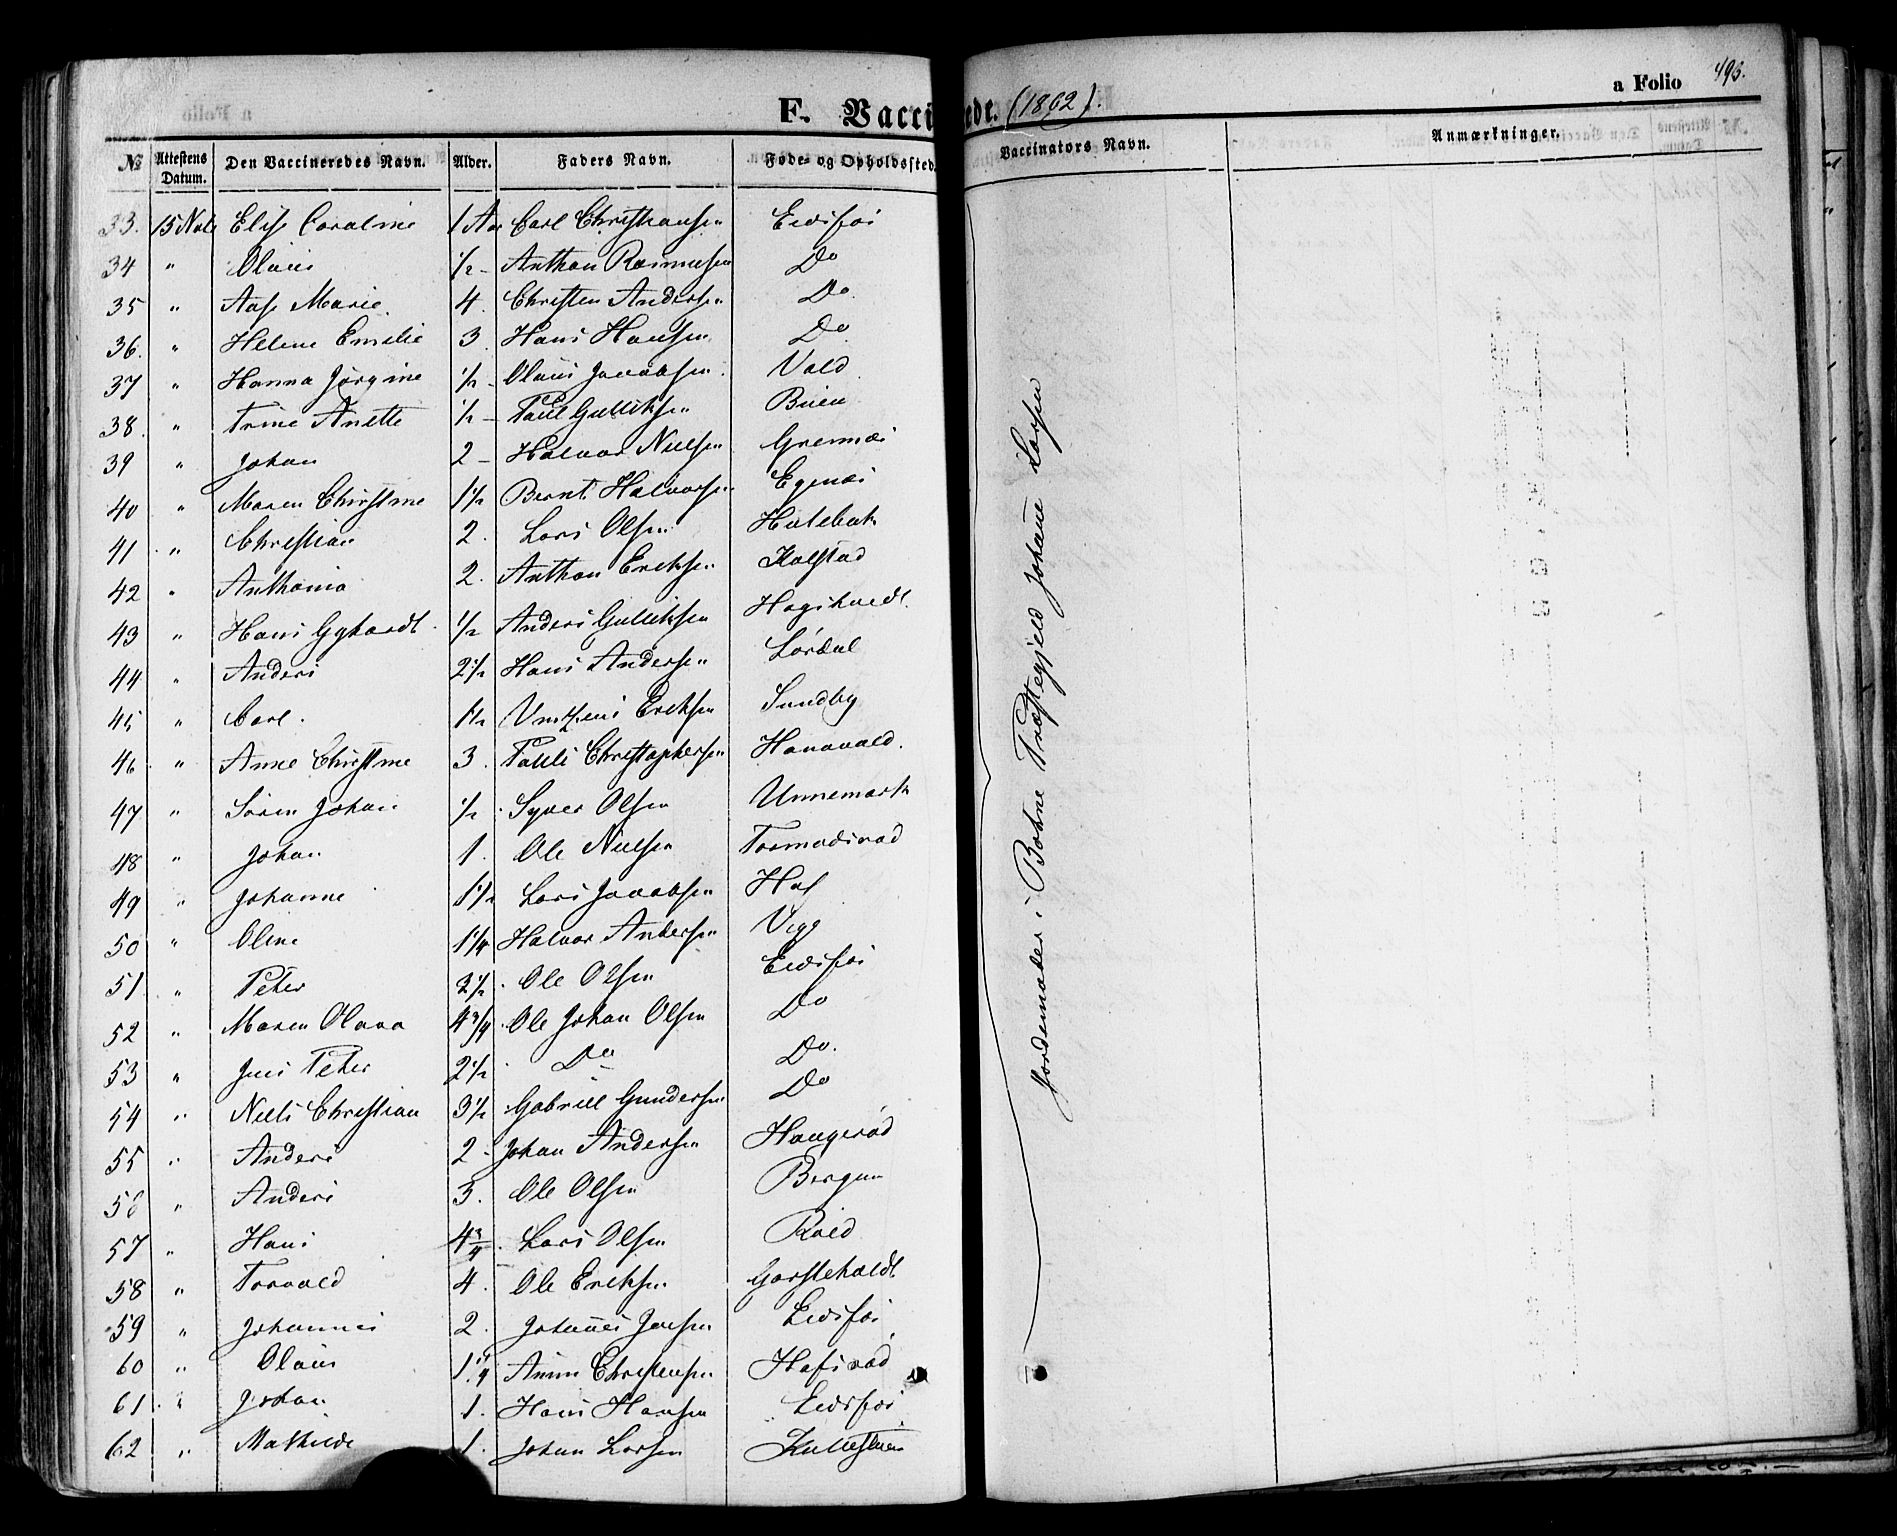 F. Vaccinerede. (1862).
a Folio 493.
№ Attestens Datum. Den Vaccineredes Navn. Alder. Faders Navn. Føde- og Opholdssted. Vaccinators Navn. Anmærkninger.
33. 15 Elise Caroline 1 Aar Carl Christiansen Eidsfos
34 " Olaus 1/2 - Anthon Rasmusen Do
35 " Aase Marie 4. Christen Andersen Do
36. " Helene Emilie 3. Hans Hansen Do
37 " Hanna Jørgine 1/2 - Olaus Jacobsen Vold
38. " Trine Anette 1/2 - Paul Gulliksen Buen
39 " Johan 2 - Halvor Nielsen Grennes
40 " Maren Christine 1 1/2 Bernt Halvorsen Egenes
41 " Christian 2. Lars Olsen Holebak
42 " Anthonia 2. Anthon Eriksen Kolstad
43 " Hans 1/2 Anders Gulliksen
44 " Anders 2 1/2 Hans Andersen Lørdal
45 " Carl. 1 1/2 Eriksen Sundby
46 " Anne Christine 3. Christophersen Hanavold.
47 " Søren Johan 1/2 Syver Olsen Unnemark
48 " Johan 1. Ole Nielsen Tormodsrød
49 " Johanne 1 1/2 Lars Jacobsen Hof
50 " Oline 1 1/4 Halvor Andersen Vegg
51 " Peter 2 1/2 Ole Olsen Eidsfos
52 " Maren Olava 4 3/4 Ole Johan Olsen Do
53 " Jens Peter 2 1/2 Do Do.
54 " Niels Christian 3 1/2 Gabriel Gundersen Do
55 " Anders 2 - Johan Andersen Haugerød
56 " Anders 3. Ole Olsen Bergan
57 " Hans 4 3/4 Lars Olsen
58 " Torvald 4. Ole Eriksen
59 " Johannes 2. Johannes Jensen Eidsfos
60 " Olaus 1 1/4 Christensen Hofsrød
61 " Johan 1. Hans Hansen Eidsfos
62 " Mathilde 1. Johan Larsen
Jordemoder i Botne Præstegjeld Johanne Larsen